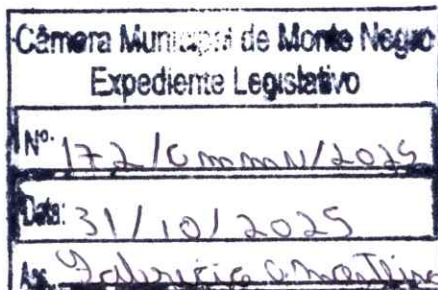 Câmara Municipal de Monte Negro
Expediente Legislativo
Nº. 172/CMMN/2025
Data: 31/10/2025
Ass.